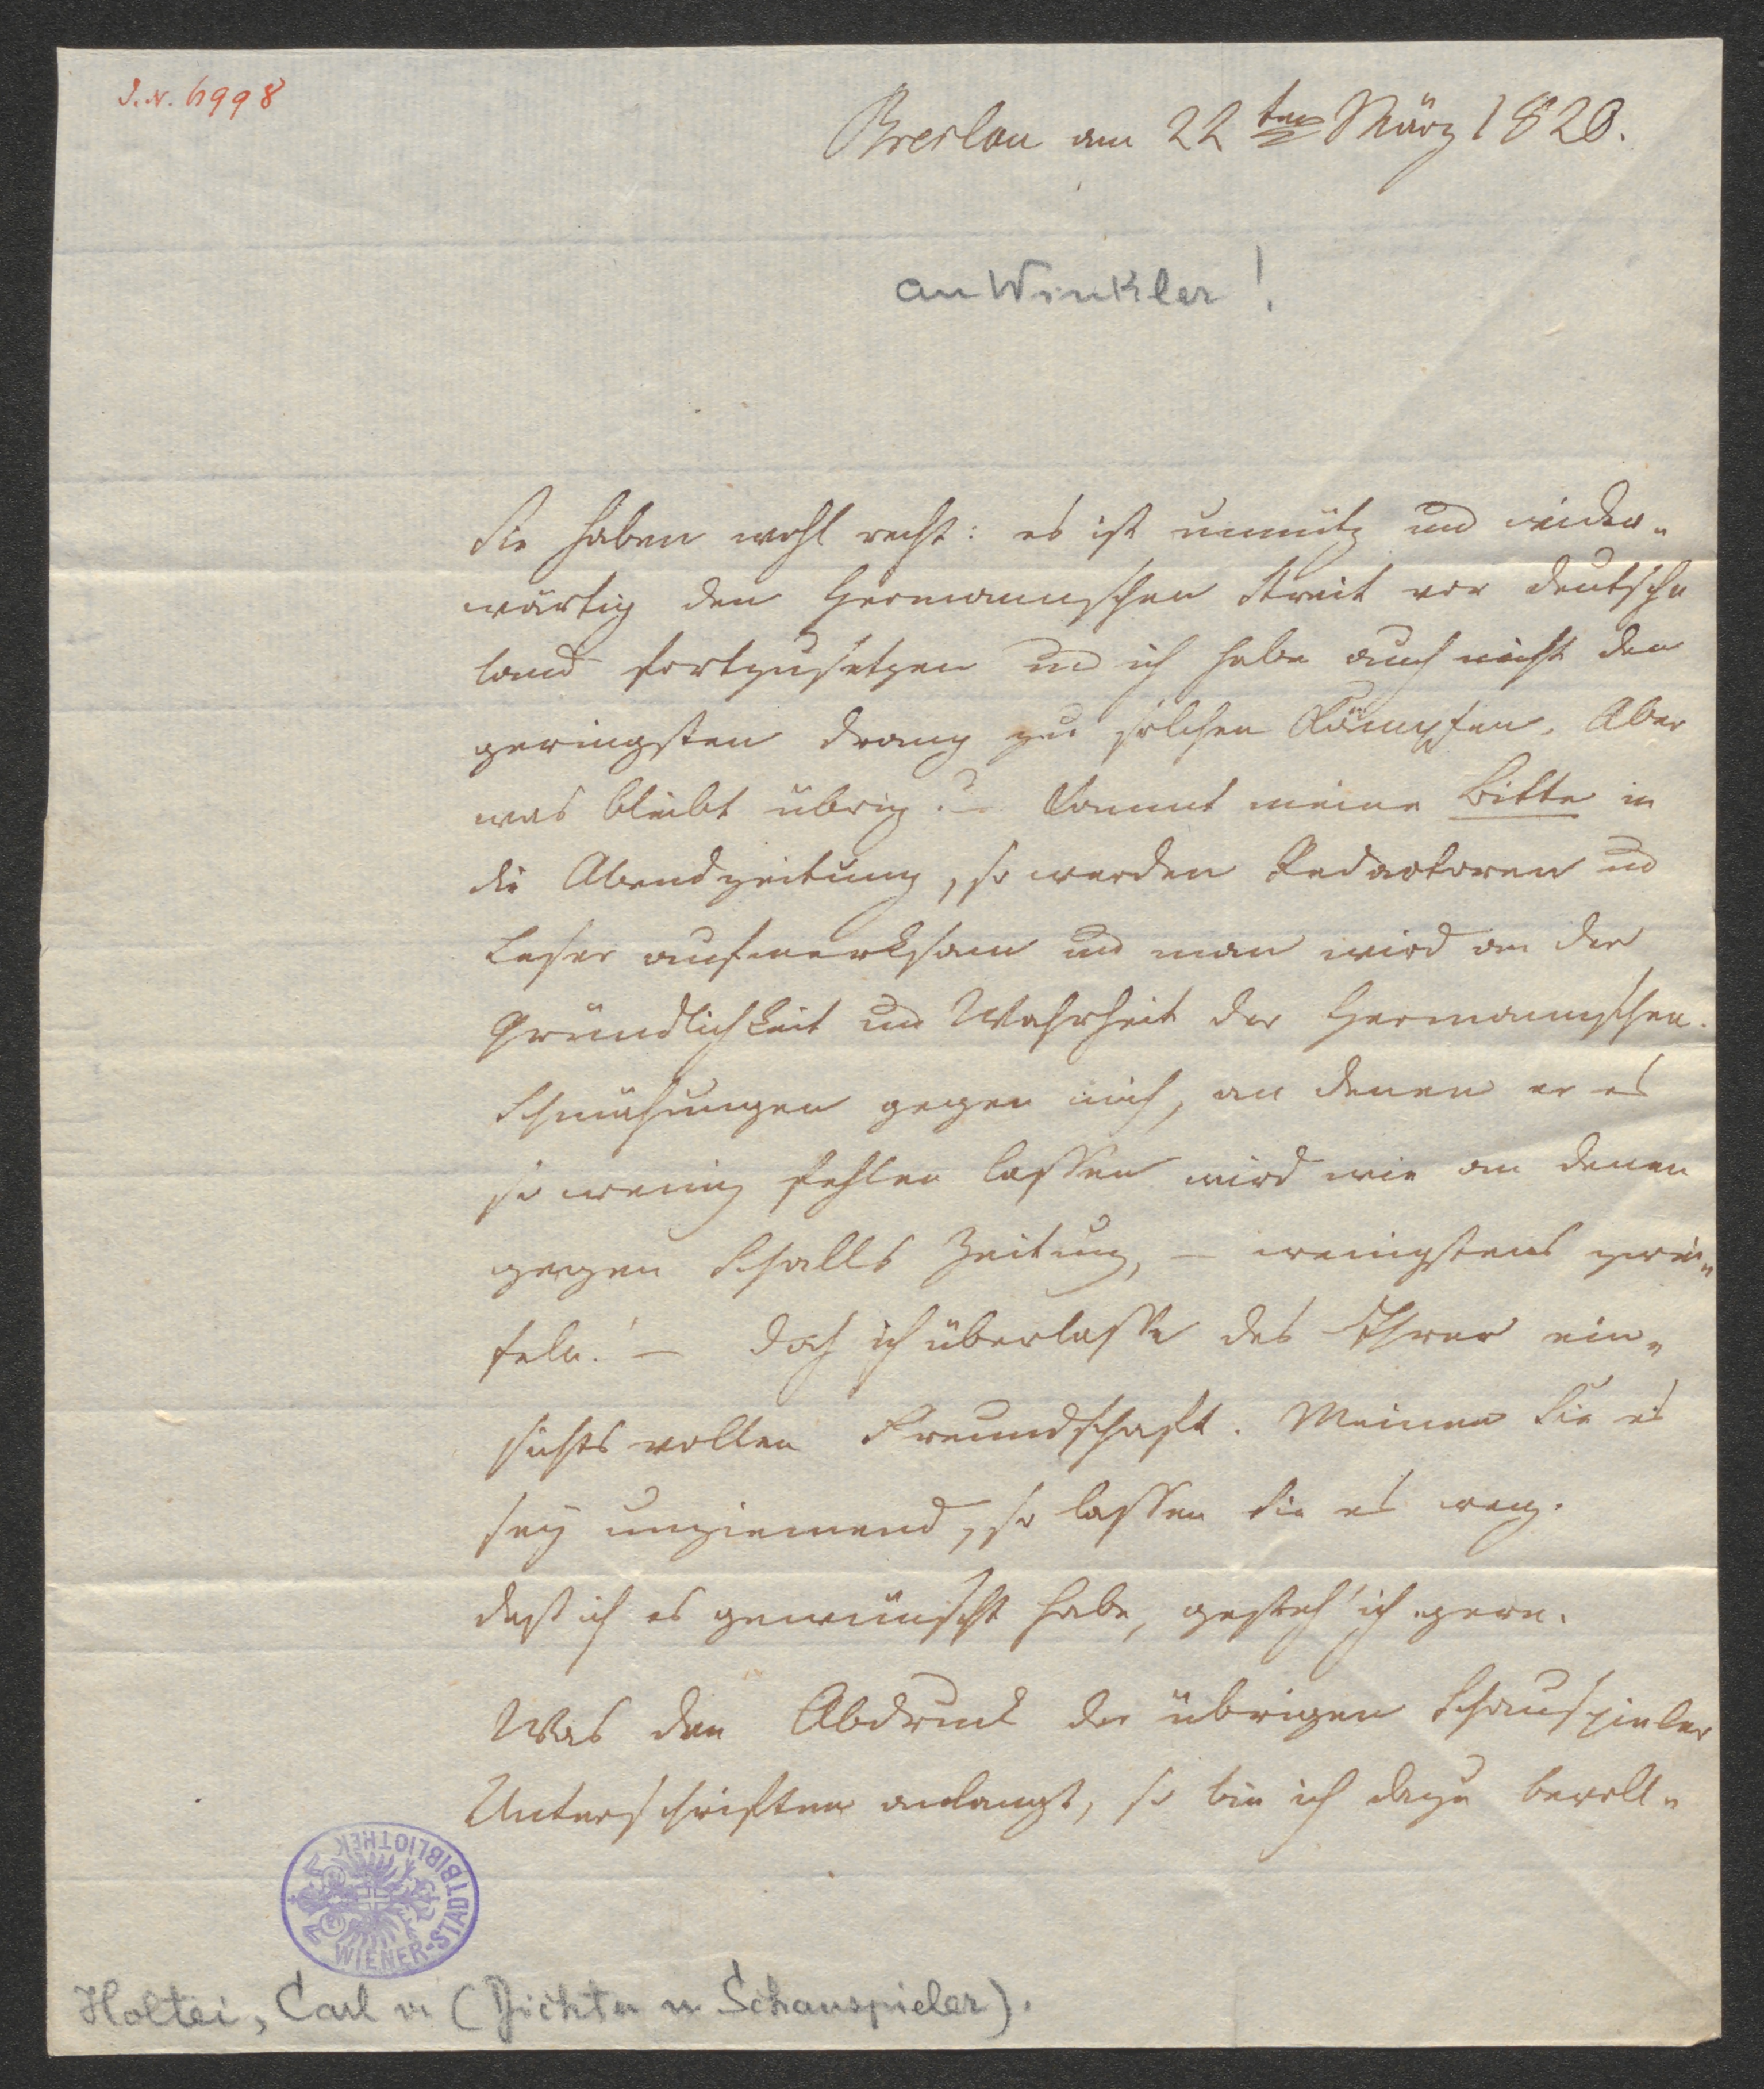 J.N. 6998
Breslau am 22ten März 1823.
an Winkler!
Sie haben wohl recht: es ist unnütz und wider-
wärtig den Hermannschen Streit vor Deutsch-
land fortzusetzen und ich habe auch nicht den
geringsten Drang zu solchen Kämpfen. Aber
was bleibt übrig? – Kommt meine Bitte in
die Abendzeitung, so werden Redactoren und
Leser aufmerksam und man wird an der
Gründlichkeit und Wahrheit der Hermannschen
Schmähungen gegen mich, an denen er es
so wenig fehlen lassen wird wie an denen
gegen Schalls Zeitung, – wenigstens zwei-
feln! – Doch ich überlasse das Ihrer ein-
sichtsvollen Freundschaft. Meinen Sie es
sey unziemend, so lassen Sie es weg.
Daß ich es gewünscht habe, gesteh' ich gern.
Was den Abdruck der übrigen Schauspieler
Unterschriften anlangt, so bin ich dazu bevoll-
WIENER-STADTBIBLIOTHEK
Holtei, Carl v. (Dichter u. Schauspieler).